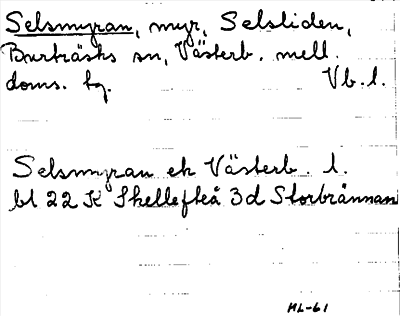 Selsmyran, myr, Selsliden,
Burträsks sn, Västerb. mell.
doms. tg. Vb. l.
Selsmyran ek Västerb. l.
bl 22 K Skellefteå 3d Storbrännan
ML-61